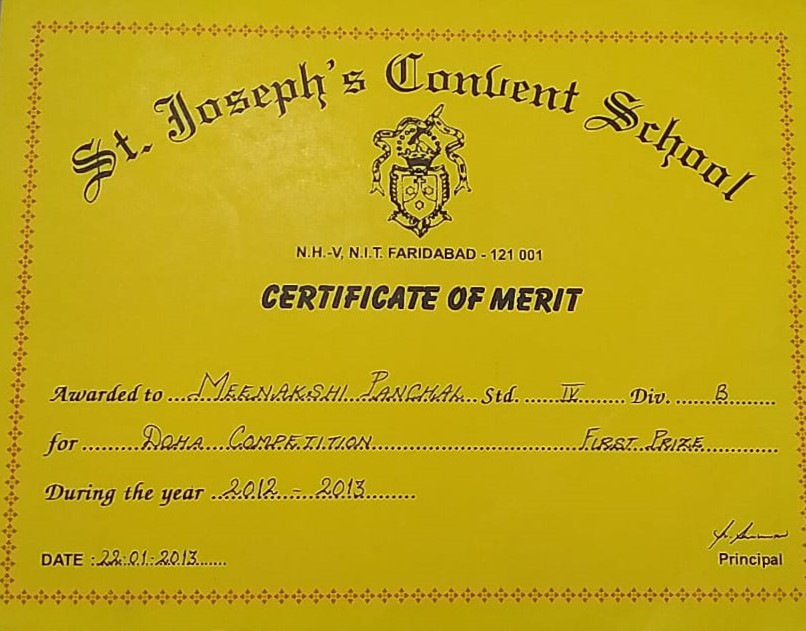 St. Joseph's Convent School
N.H.-V, N.I.T. FARIDABAD - 121 001
CERTIFICATE OF MERIT
Awarded to ... MEENAKSHI PANCHAL ... Std. ... IV ... Div. ... B ...
for ... DOHA COMPETITION ... FIRST PRIZE ...
During the year ... 2012 - 2013 ...
DATE : 22.01.2013 ...
Principal